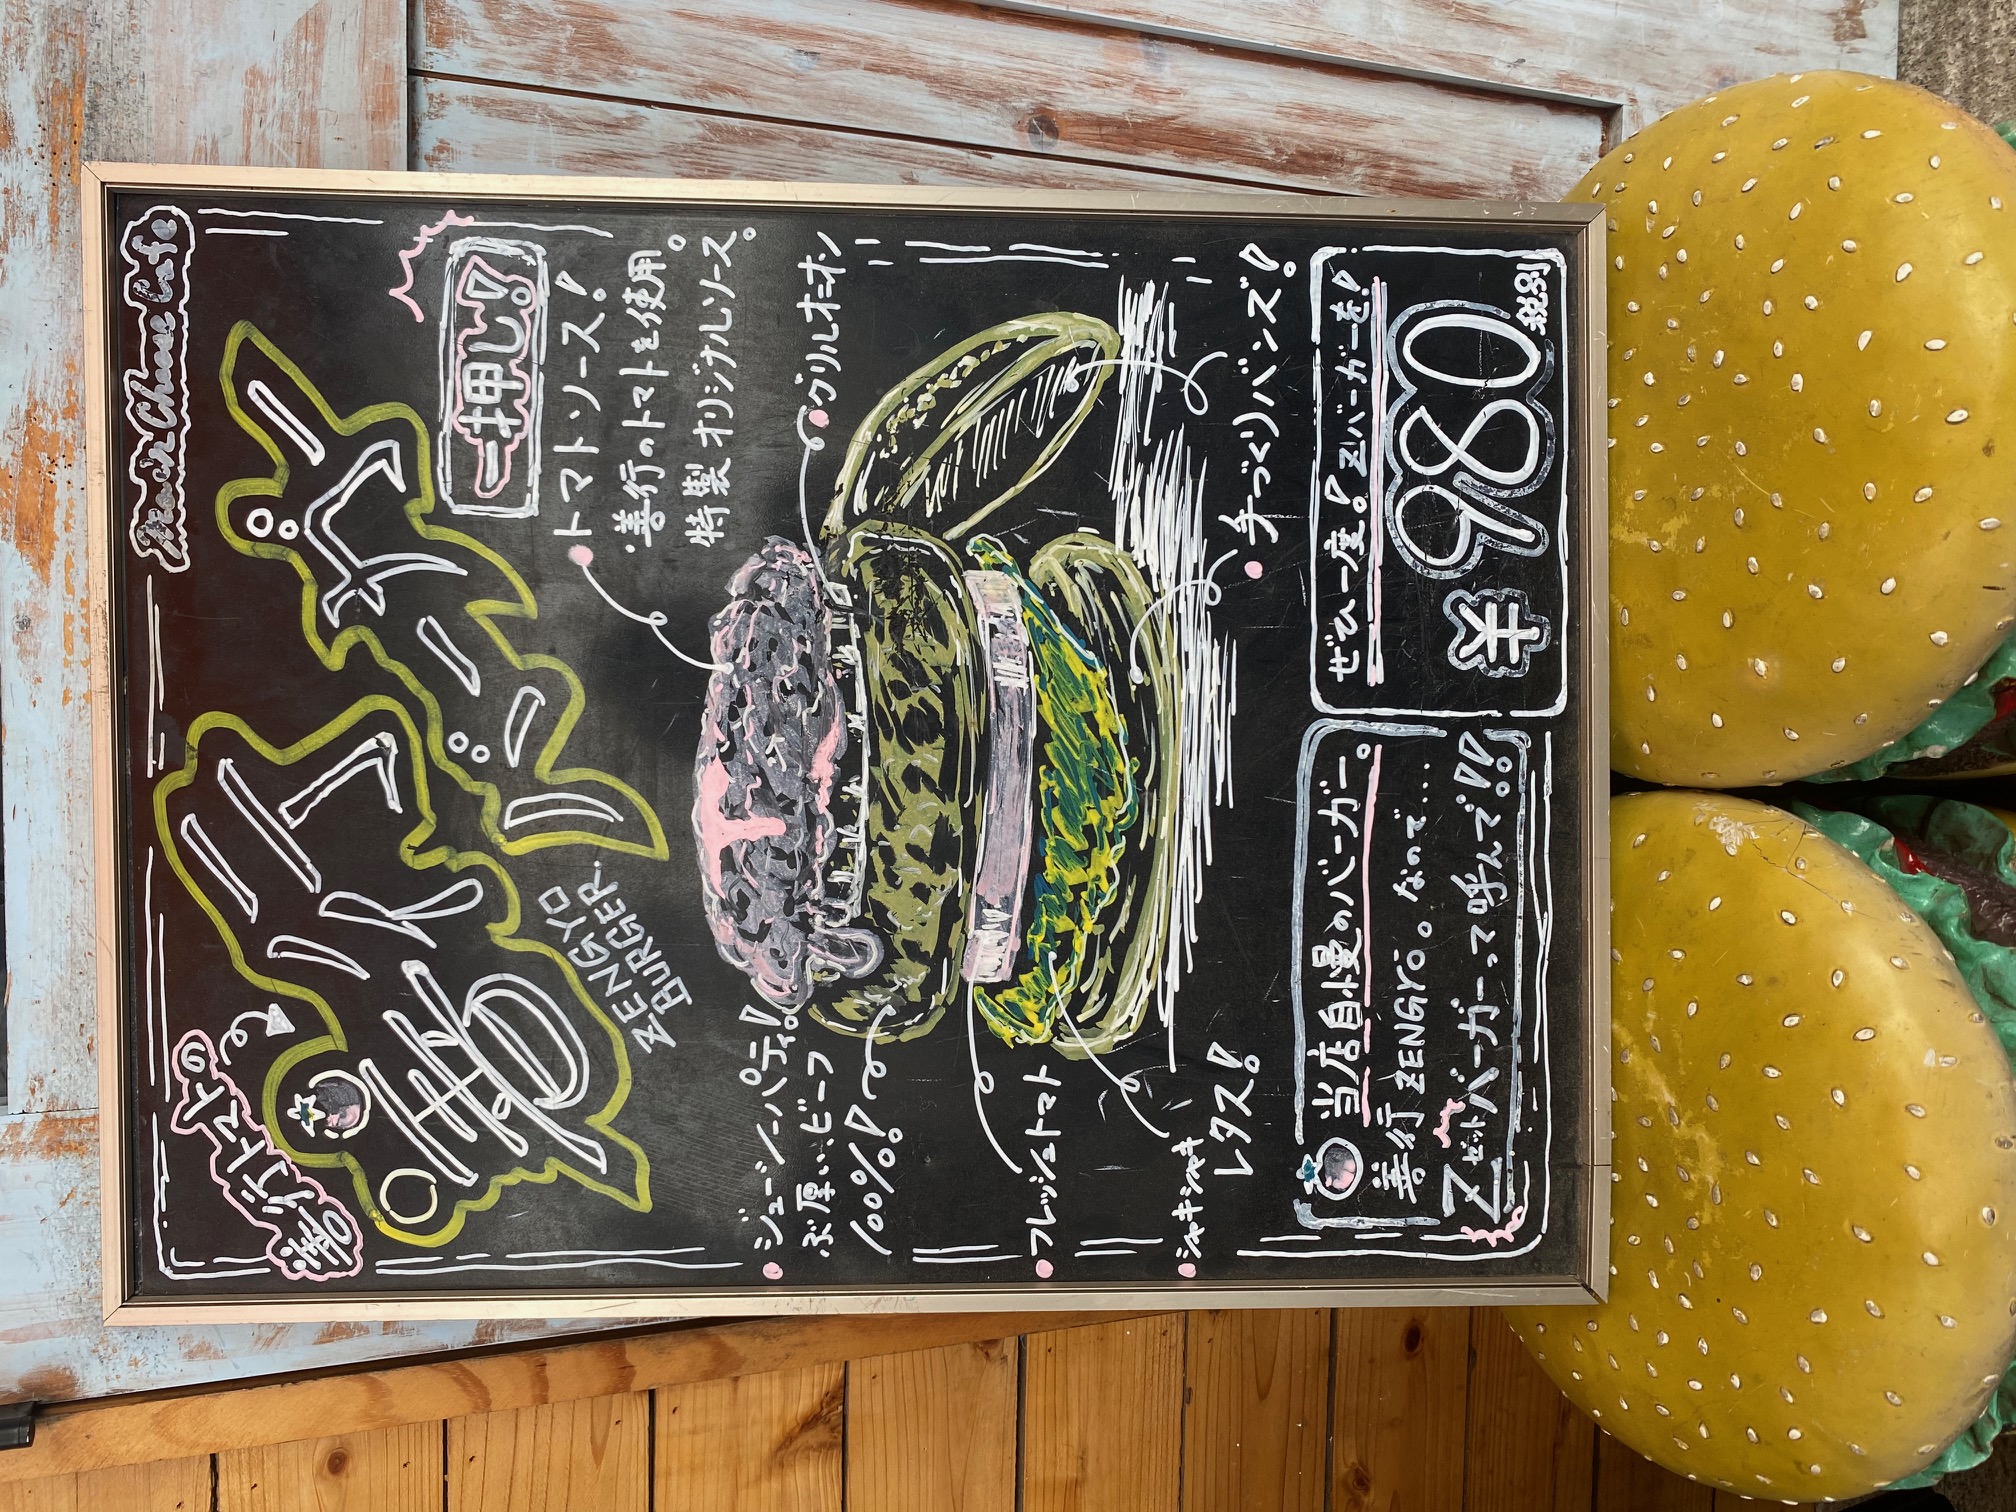 Meat in Cheese Cafe
善行トマト
善行バーガー
ZENGYO
BURGER
一押し!
トマトソース!
善行のトマトを使用。
特製オリジナルソース。
ジューシーパティ!
ぶ厚いビーフ
100%!
グリルオニオン
フレッシュトマト
シャキシャキ
レタス!
手づくりバンズ!
当店自慢のバーガー。
善行ZENGYO。なので…
Zバーガーって呼んで!!
ゼット
ぜひ一度!Zバーガーを!
¥980
税別